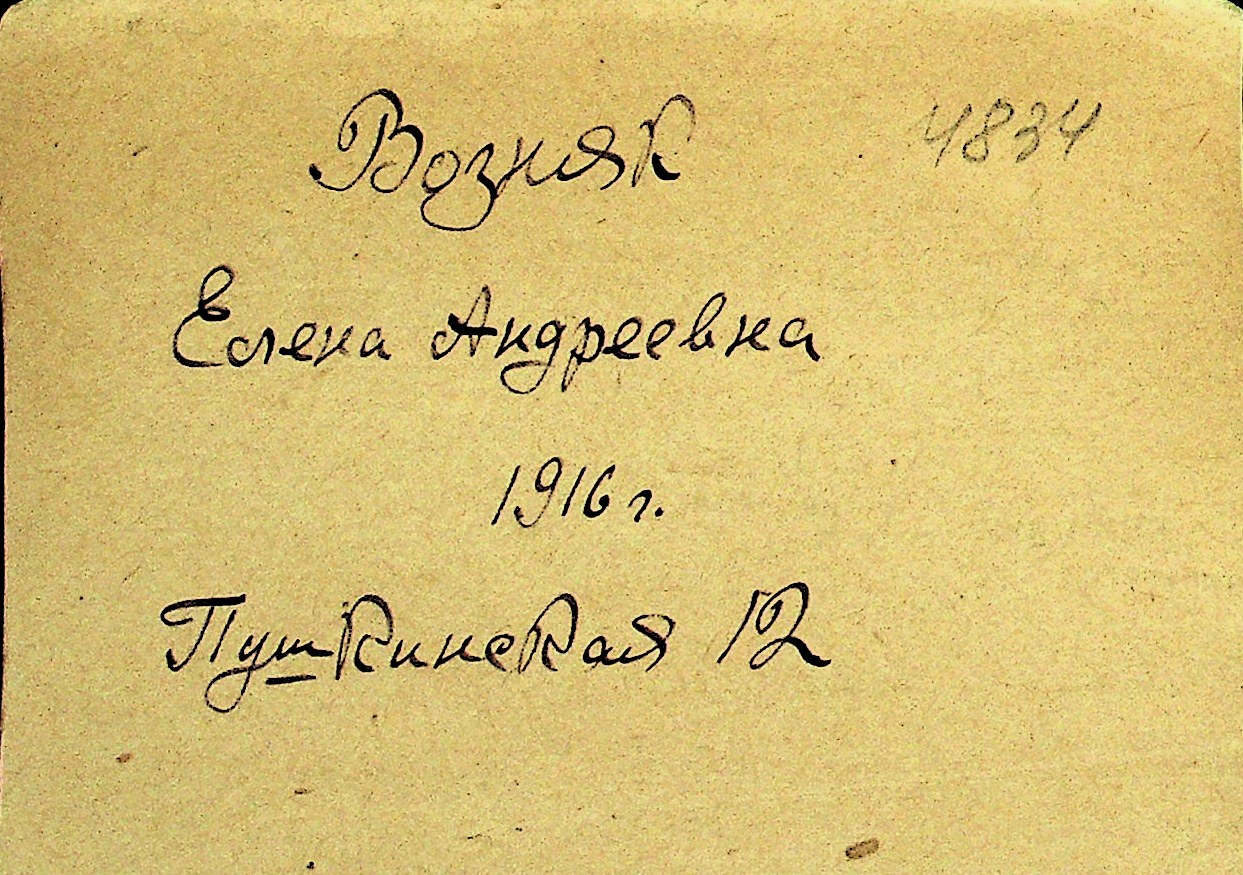 Возняк 4834
Елена Андреевна
1916 г.
Пушкинская 12